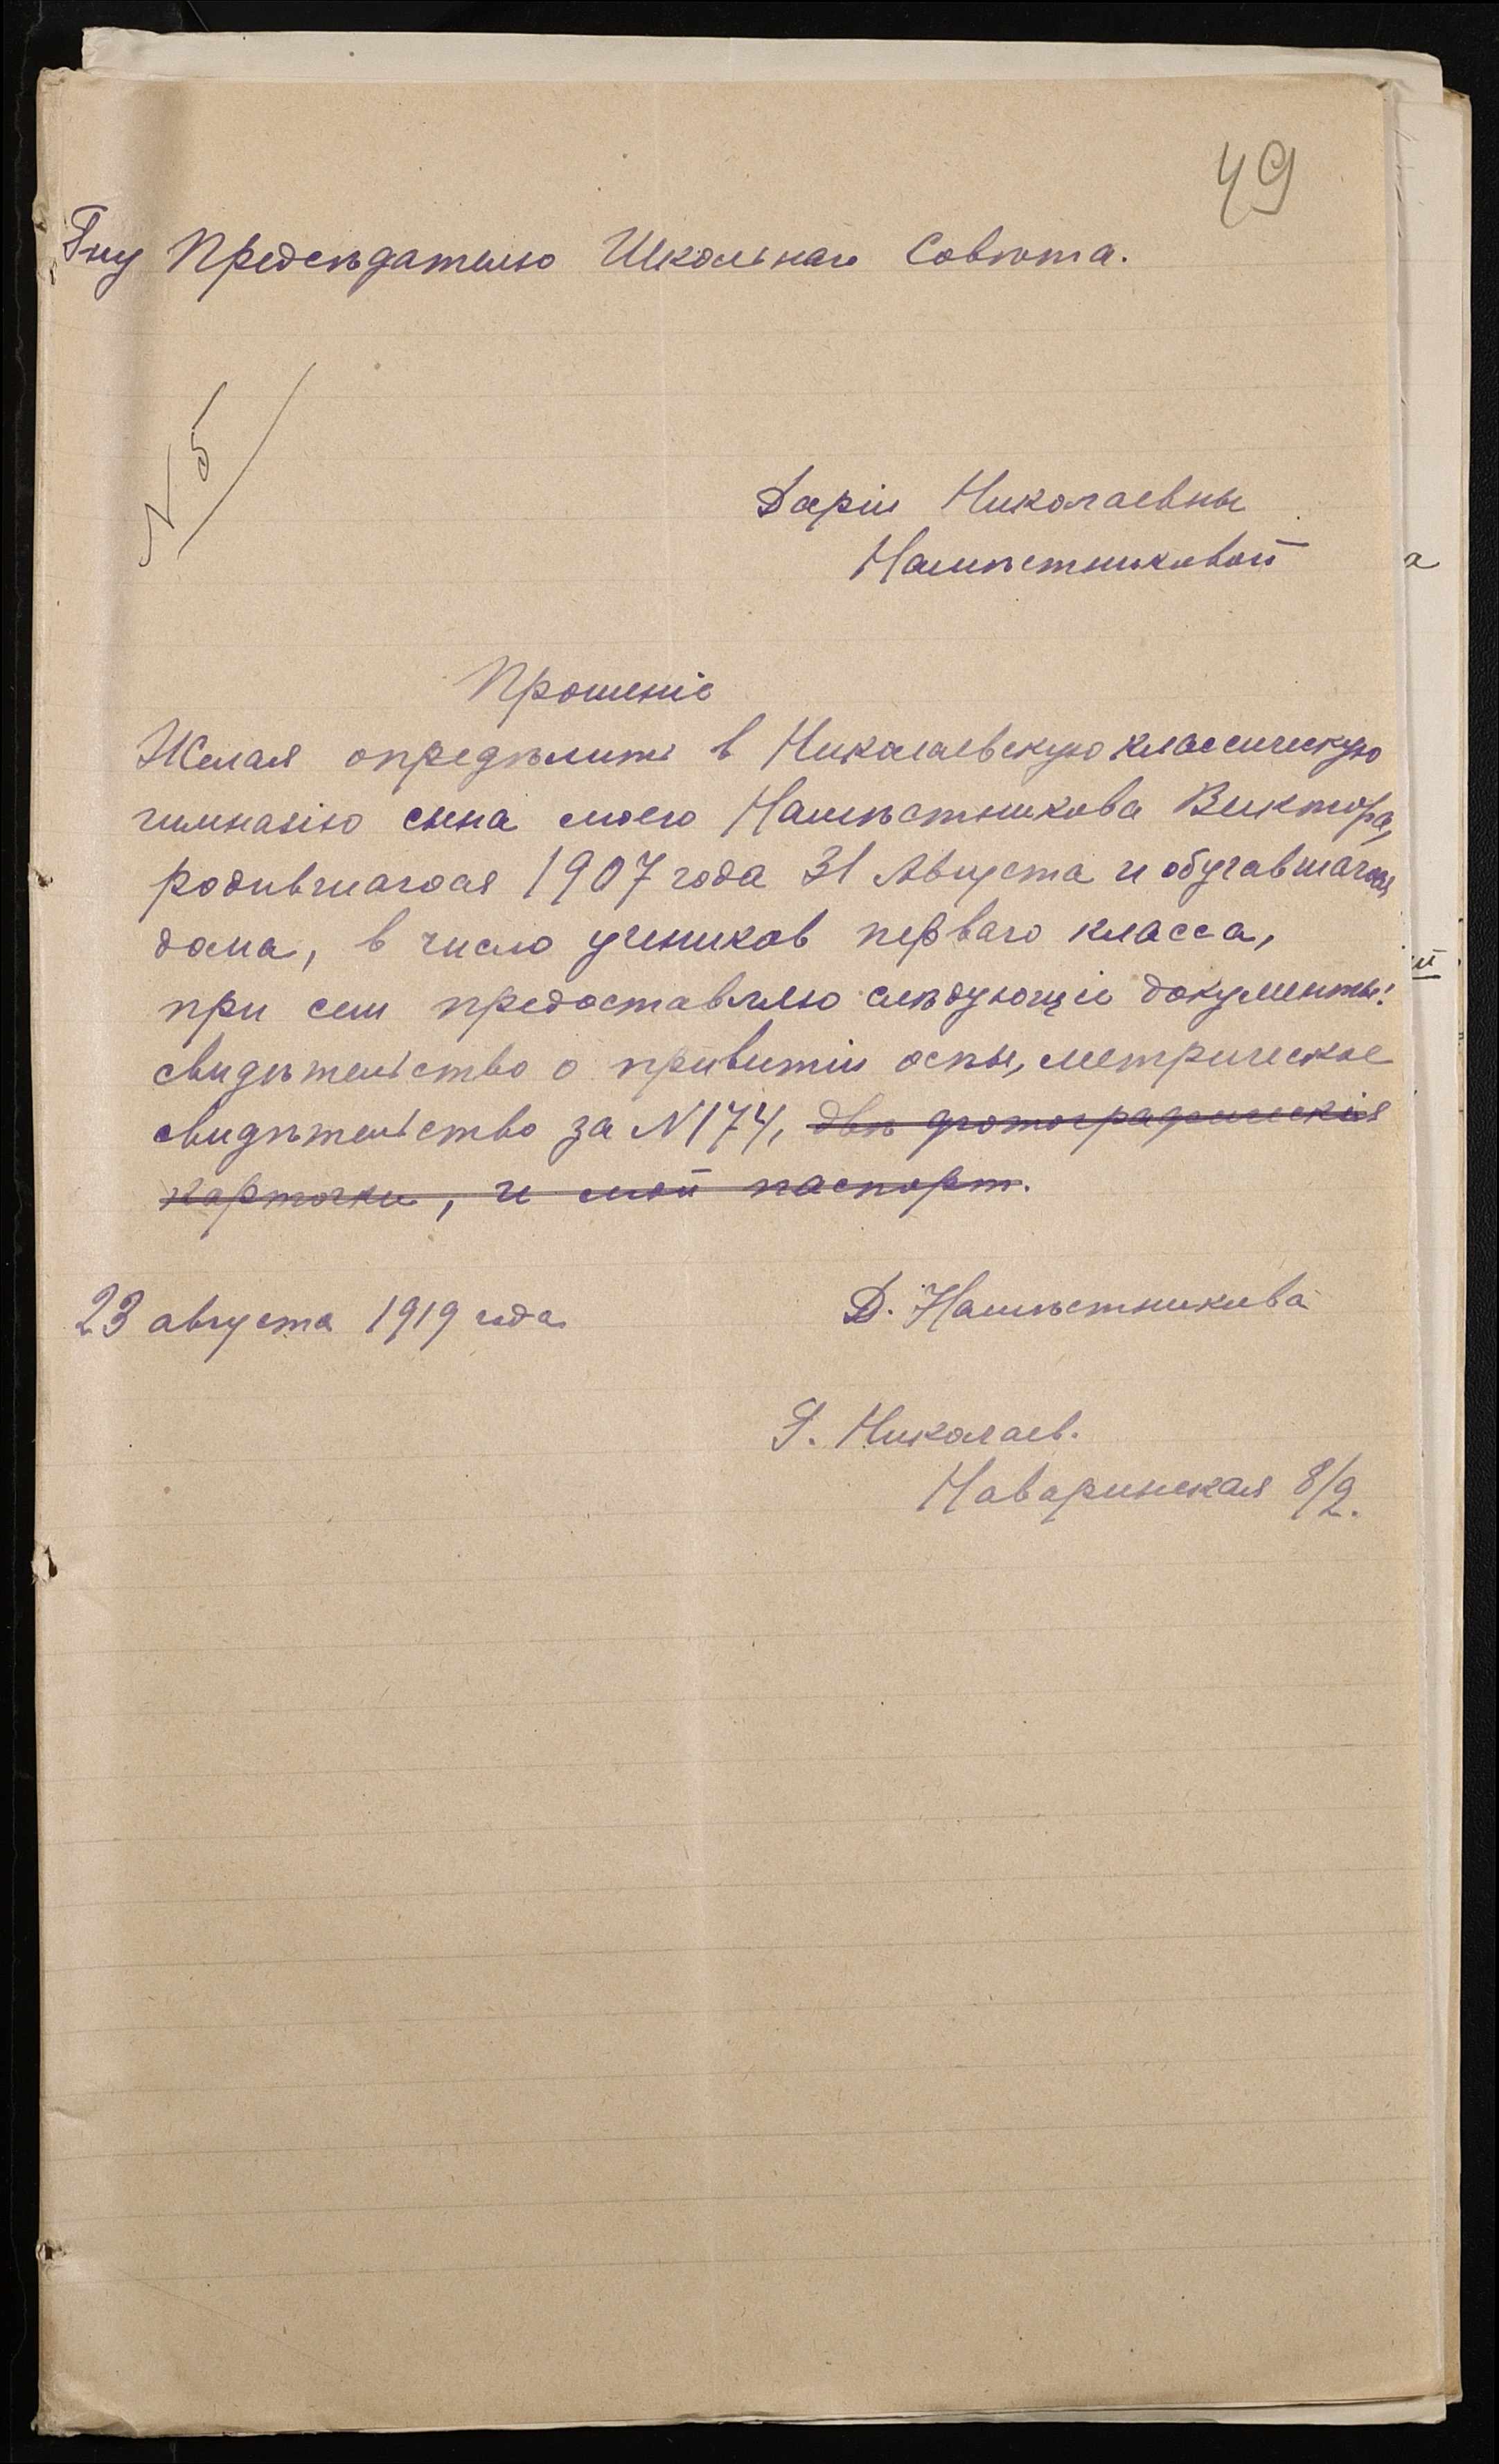 49
Гну Предсѣдателю Школьнаго Совѣта.
N 5
Даріи Николаевны
Намѣстниковой
Прошеніе
Желая опредѣлить в Николаевскую классическую
гимназію сына моего Намѣстникова Виктора,
родившагося 1907 года 31 Августа и обучавшагося
дома, в число учеников перваго класса,
при сем предоставляю слѣдующіе документы:
свидѣтельство о привитіи оспы, метрическое
свидѣтельство за N 174, двѣ фотографическія
карточки, и мой паспорт.
23 августа 1919 года
Д. Намѣстникова
Г. Николаев.
Наваринская 8/2.